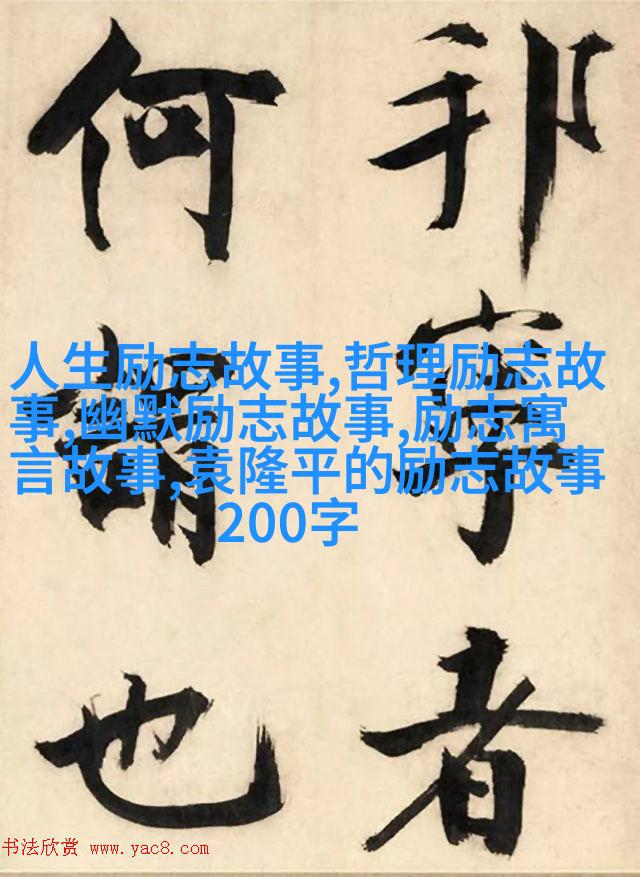 邦寧者
何謂也
人生励志故事,哲理励志故
事,幽默励志故事,励志寓
言故事,袁隆平的励志故事
200字
书法欣赏 www.yac8.com